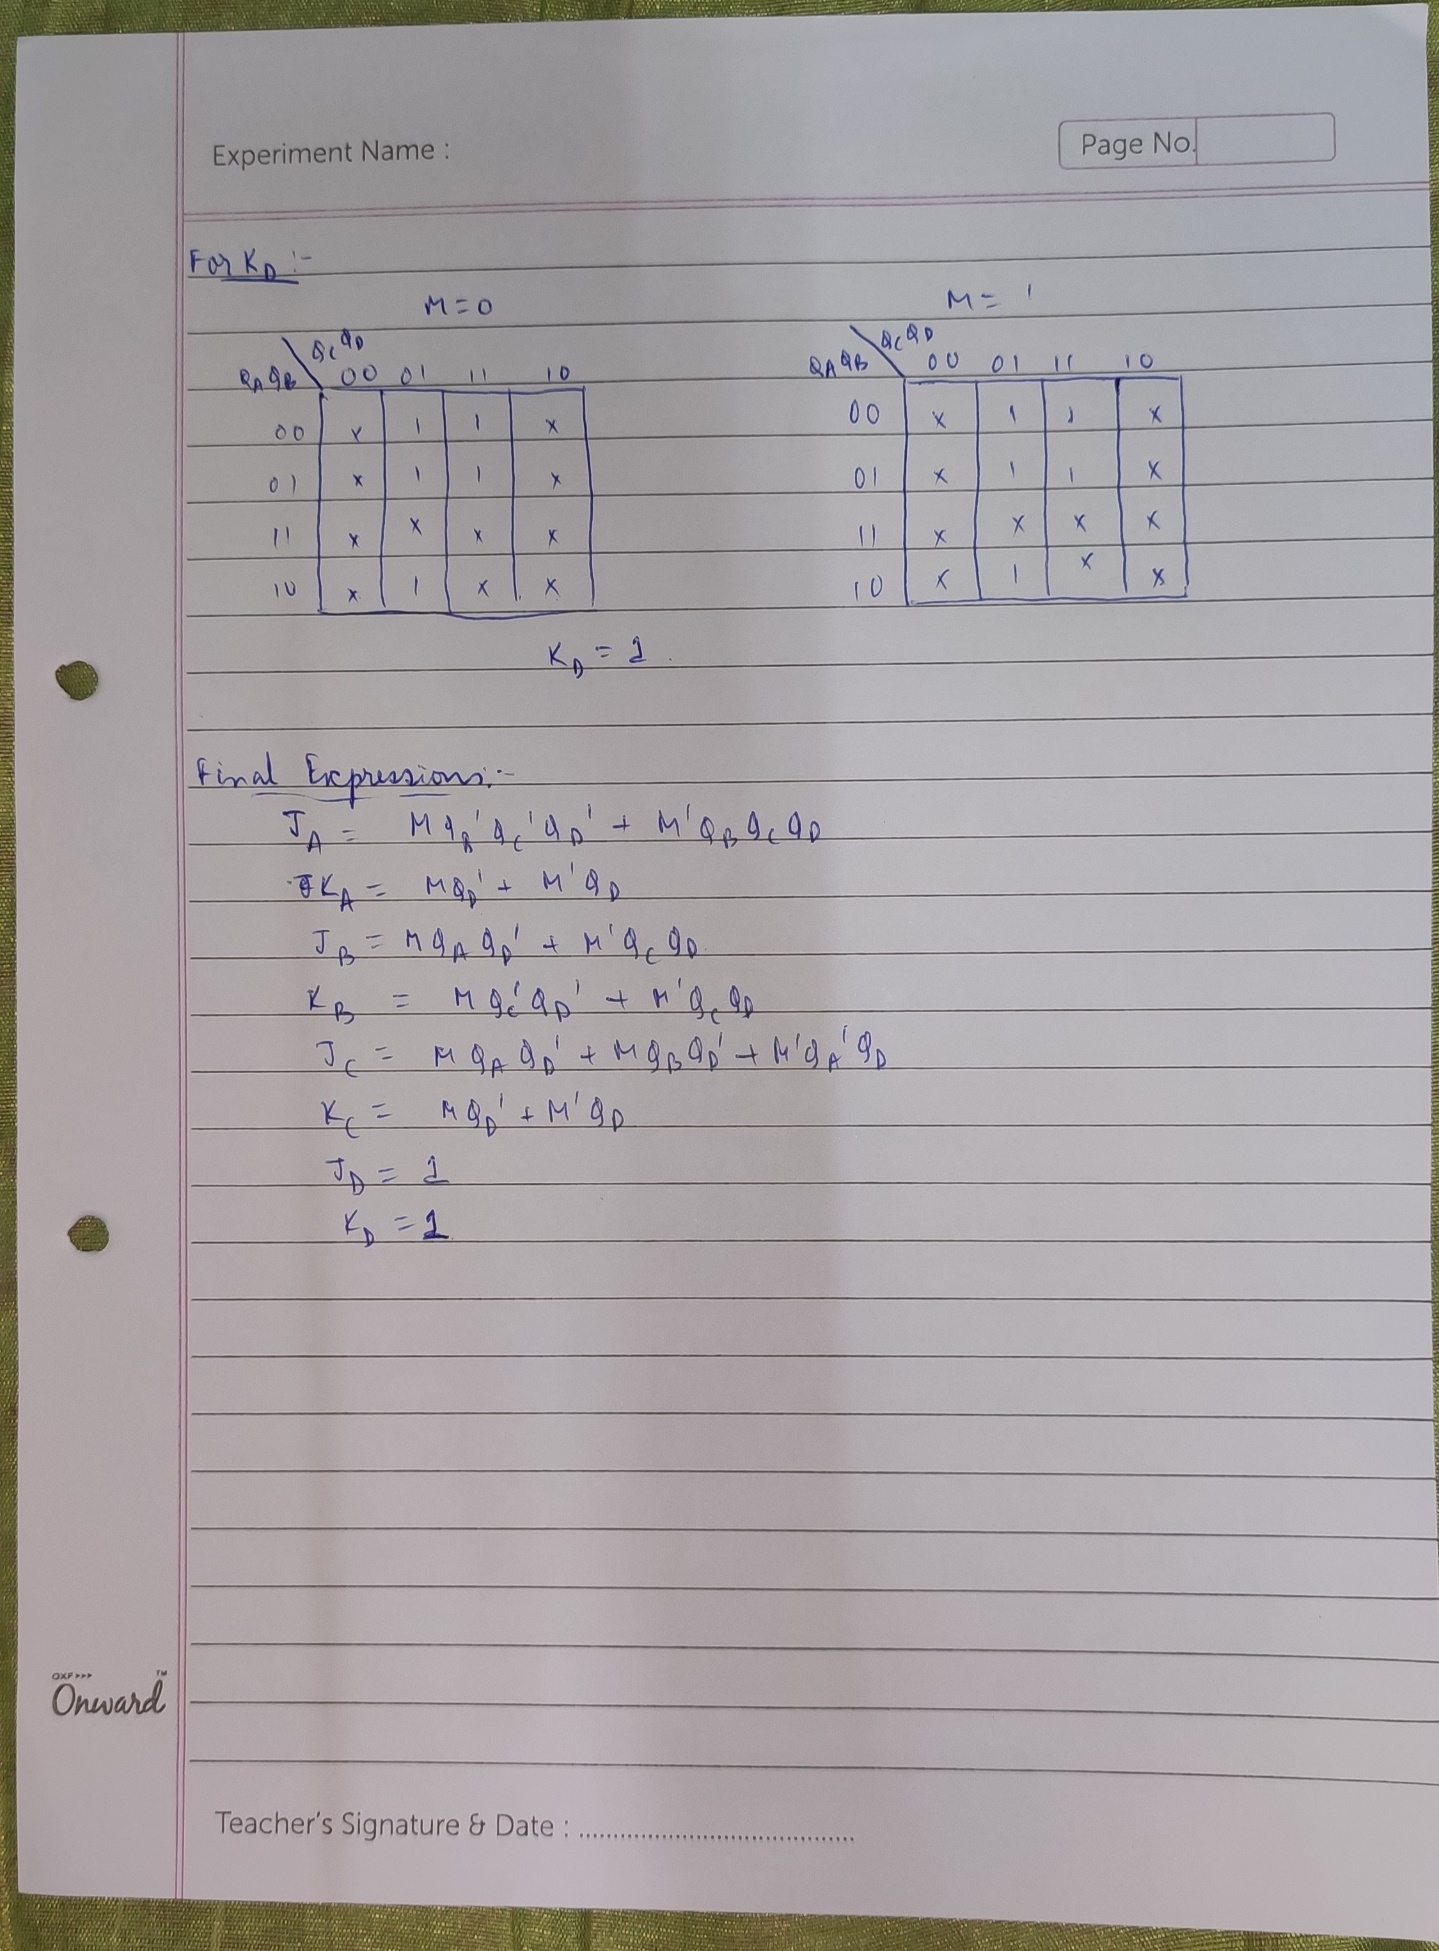 Experiment Name :
Page No.
For K_D :-
M=0
M=1
Q_C Q_D
Q_A Q_B 00 01 11 10
00 x 1 1 x
01 x 1 1 x
11 x x x x
10 x 1 x x
Q_C Q_D
Q_A Q_B 00 01 11 10
00 x 1 1 x
01 x 1 1 x
11 x x x x
10 x 1 x x
K_D = 1
Final Expressions:-
J_A = M Q_B' Q_C' Q_D' + M' Q_B Q_C Q_D
K_A = M Q_D' + M' Q_D
J_B = M Q_A Q_D' + M' Q_C Q_D
K_B = M Q_C' Q_D' + M' Q_C Q_D
J_C = M Q_A Q_D' + M Q_B Q_D' + M' Q_A' Q_D
K_C = M Q_D' + M' Q_D
J_D = 1
K_D = 1
OXF
Onward TM
Teacher's Signature & Date : ........................................